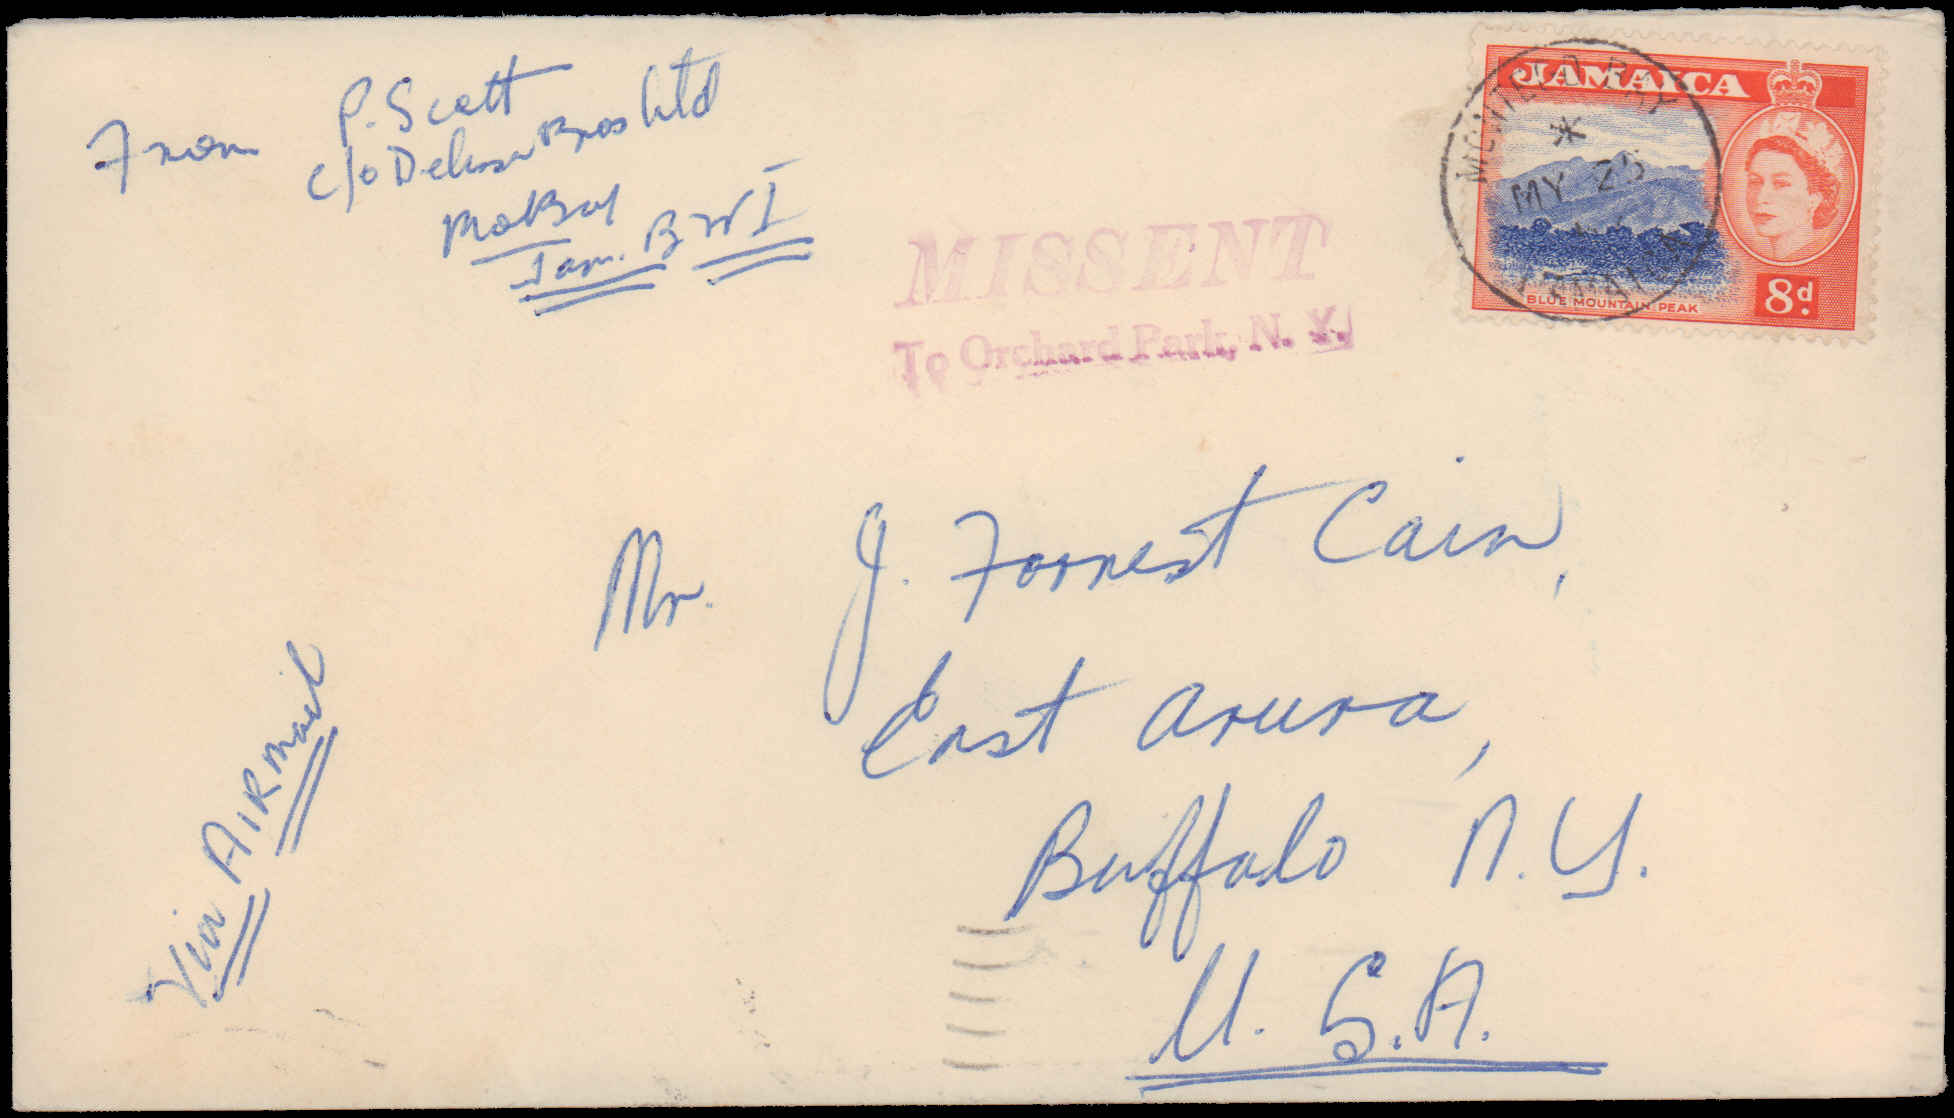 From P. Scott
c/o Delisser Bros Ltd
MoBay
Jam. B W I
MISSENT
To Orchard Park, N. Y.
JAMAICA
MONTEGO BAY
MY 25
JAMAICA
BLUE MOUNTAIN PEAK
8d.
Mr. J. Forrest Cain,
East Arura,
Buffalo N.Y.
U.S.A.
Via AIRmail